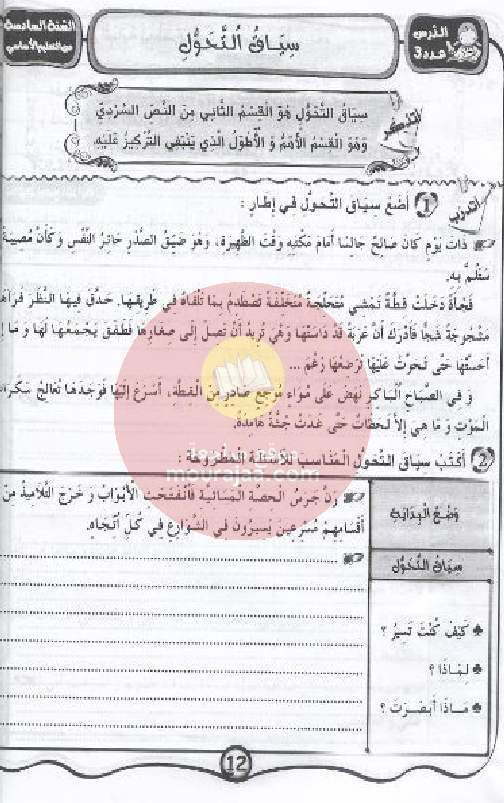 السنة السادسة
من التعليم الأساسي
سِيَاقُ التَّحَوُّلِ
الدّرس
عدد 3
أتذكّر
سِيَاقُ التَّحَوُّلِ هُوَ الْقِسْمُ الثَّانِي مِنَ النَّصِّ السَّرْدِيِّ
وَهُوَ الْقِسْمُ الْأَهَمُّ وَ الْأَطْوَلُ الَّذِي يَنْبَغِي التَّرْكِيزُ عَلَيْهِ.
أتدرّب
1 أَضَعُ سِيَاقَ التَّحَوُّلِ فِي إِطَارٍ :
ذَاتَ يَوْمٍ كَانَ صَالِحٌ جَالِسًا أَمَامَ مَكْتَبِهِ وَقْتَ الظَّهِيرَةِ، وَهُوَ ضَيِّقُ الصَّدْرِ حَائِرُ النَّفْسِ وَ كَأَنَّ مُصِيبَةً
سَتُلِمُّ بِهِ.
فَجْأَةً دَخَلَتْ قِطَّةٌ تَمْشِي مُتَخَلِّجَةً مُتَخَلِّفَةً تَصْطَدِمُ بِمَا تَلْقَاهُ فِي طَرِيقِهَا. حَدَّقَ فِيهَا النَّظَرَ فَرَآهَا
مَشْجُوجَةً شَجًّا فَأَدْرَكَ أَنَّ عَرَبَةً قَدْ دَاسَتْهَا وَهِيَ تُرِيدُ أَنْ تَصِلَ إِلَى صِغَارِهَا فَطَفِقَ يَجْمَعُهَا لَهَا وَ مَا إِنْ
أَحَسَّتْهَا حَتَّى تَحَرَّتْ عَلَيْهَا تُرْضِعُهَا رَغْمَ ...
وَ فِي الصَّبَاحِ الْبَاكِرِ نَهَضَ عَلَى مُوَاءٍ مُوجِعٍ صَادِرٍ مِنَ الْقِطَّةِ، أَسْرَعَ إِلَيْهَا فَوَجَدَهَا تُعَالِجُ سَكَرَاتِ
الْمَوْتِ وَ مَا هِيَ إِلَّا لَحَظَاتٌ حَتَّى غَدَتْ جُثَّةً هَامِدَةً.
موقع مراجعة
mourajaa.com
2 أَكْتُبُ سِيَاقَ التَّحَوُّلِ الْمُنَاسِبَ لِلْأَسْئِلَةِ الْمَطْرُوحَةِ :
وَضْعُ الْبِدَايَةِ
رَنَّ جَرَسُ الْحِصَّةِ الْمَسَائِيَّةِ فَانْفَتَحَتِ الْأَبْوَابُ وَ خَرَجَ التَّلَامِيذُ مِنْ
أَقْسَامِهِمْ مُسْرِعِينَ يَسِيرُونَ فِي الشَّوَارِعِ فِي كُلِّ اتِّجَاهٍ.
سِيَاقُ التَّحَوُّلِ
كَيْفَ كُنْتَ تَسِيرُ ؟
لِمَاذَا ؟
مَاذَا أَبْصَرْتَ ؟
12